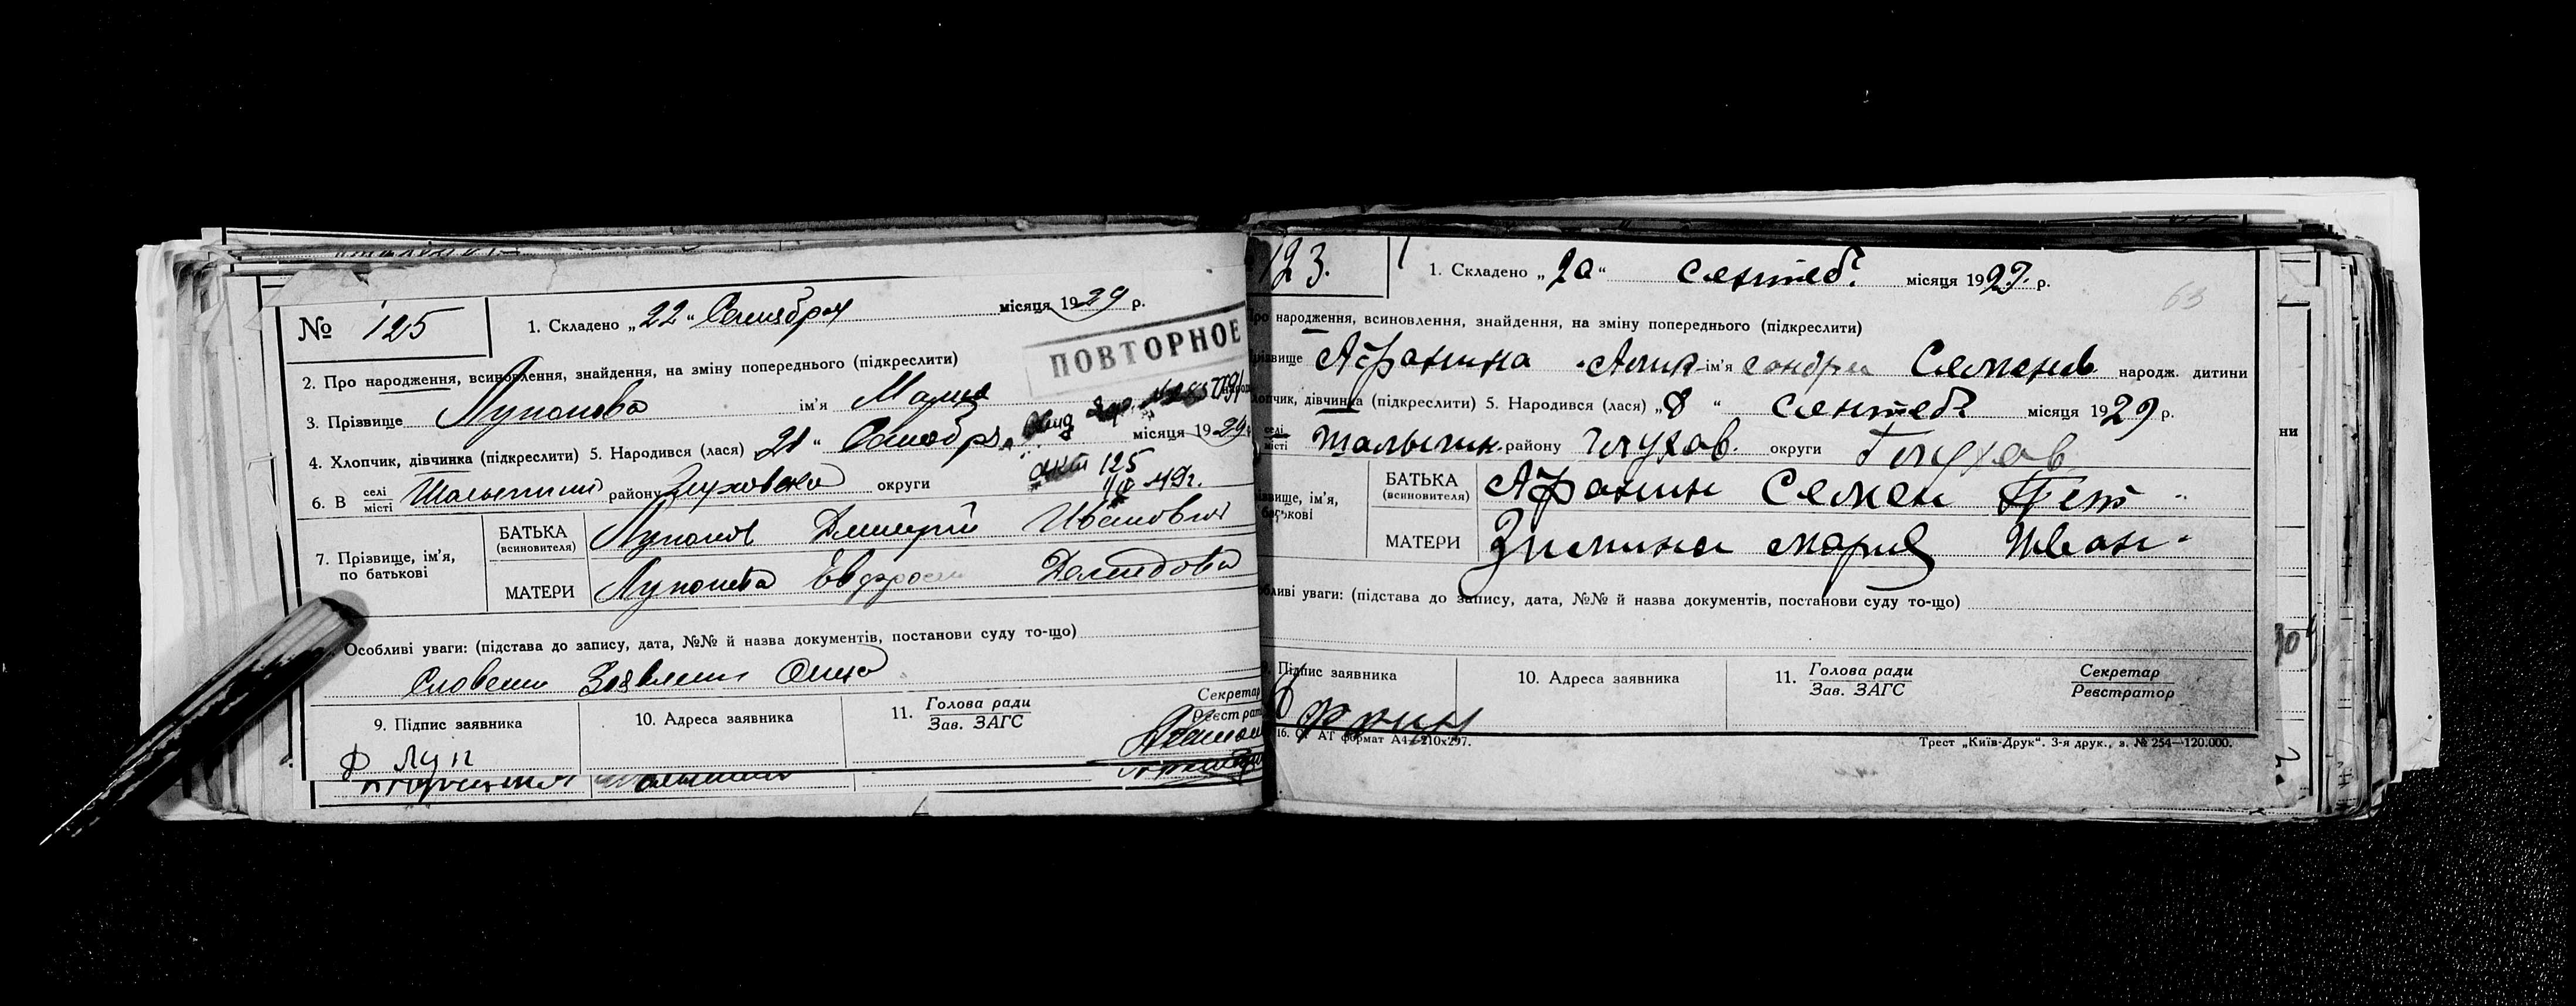 № 125
1. Складено „22“ Сентября місяця 1929 р.
ПОВТОРНОЕ
2. Про народження, всиновлення, знайдення, на зміну попереднього (підкреслити)
3. Прізвище Лупанова ім'я Мария
4. Хлопчик, дівчинка (підкреслити) 5. Народився (лася) 21“ Сентября місяця 1929
акт 125
6. В селі місті Шалыгини району Глуховско округи
7. Прізвище, ім'я, по батькові
БАТЬКА (всиновителя) Лупанов Дмитрий Иванович
МАТЕРИ Лупанова Евфрос Демидова
Особливі уваги: (підстава до запису, дата, №№ й назва документів, постанови суду то-що)
Словесни Заявлени Отца
9. Підпис заявника
10. Адреса заявника
11. Голова ради Зав. ЗАГС
Секретар Реєстрат
Ф Луп
123.
1. Складено „20“ сентеб. місяця 1929. р.
63
ро народження, всиновлення, знайдення, на зміну попереднього (підкреслити)
різвище Афонина Алик ім'я сондри Семенов народж. дитини
опчик, дівчинка (підкреслити) 5. Народився (лася) „8“ сентеб. місяця 1929 р.
селі місті Шалыгин. району Глухов. округи Глухов
звище, ім'я, батькові
БАТЬКА (всиновителя) Афонин Семен Пет
МАТЕРИ Зимина мария Иван
бливі уваги: (підстава до запису, дата, №№ й назва документів, постанови суду то-що)
9. Підпис заявника
10. Адреса заявника
11. Голова ради Зав. ЗАГС
Секретар Реєстратор
16. Ст АТ формат А4—210х297.
Трест „Київ-Друк“. 3-я друк., з. № 254—120.000.
ни